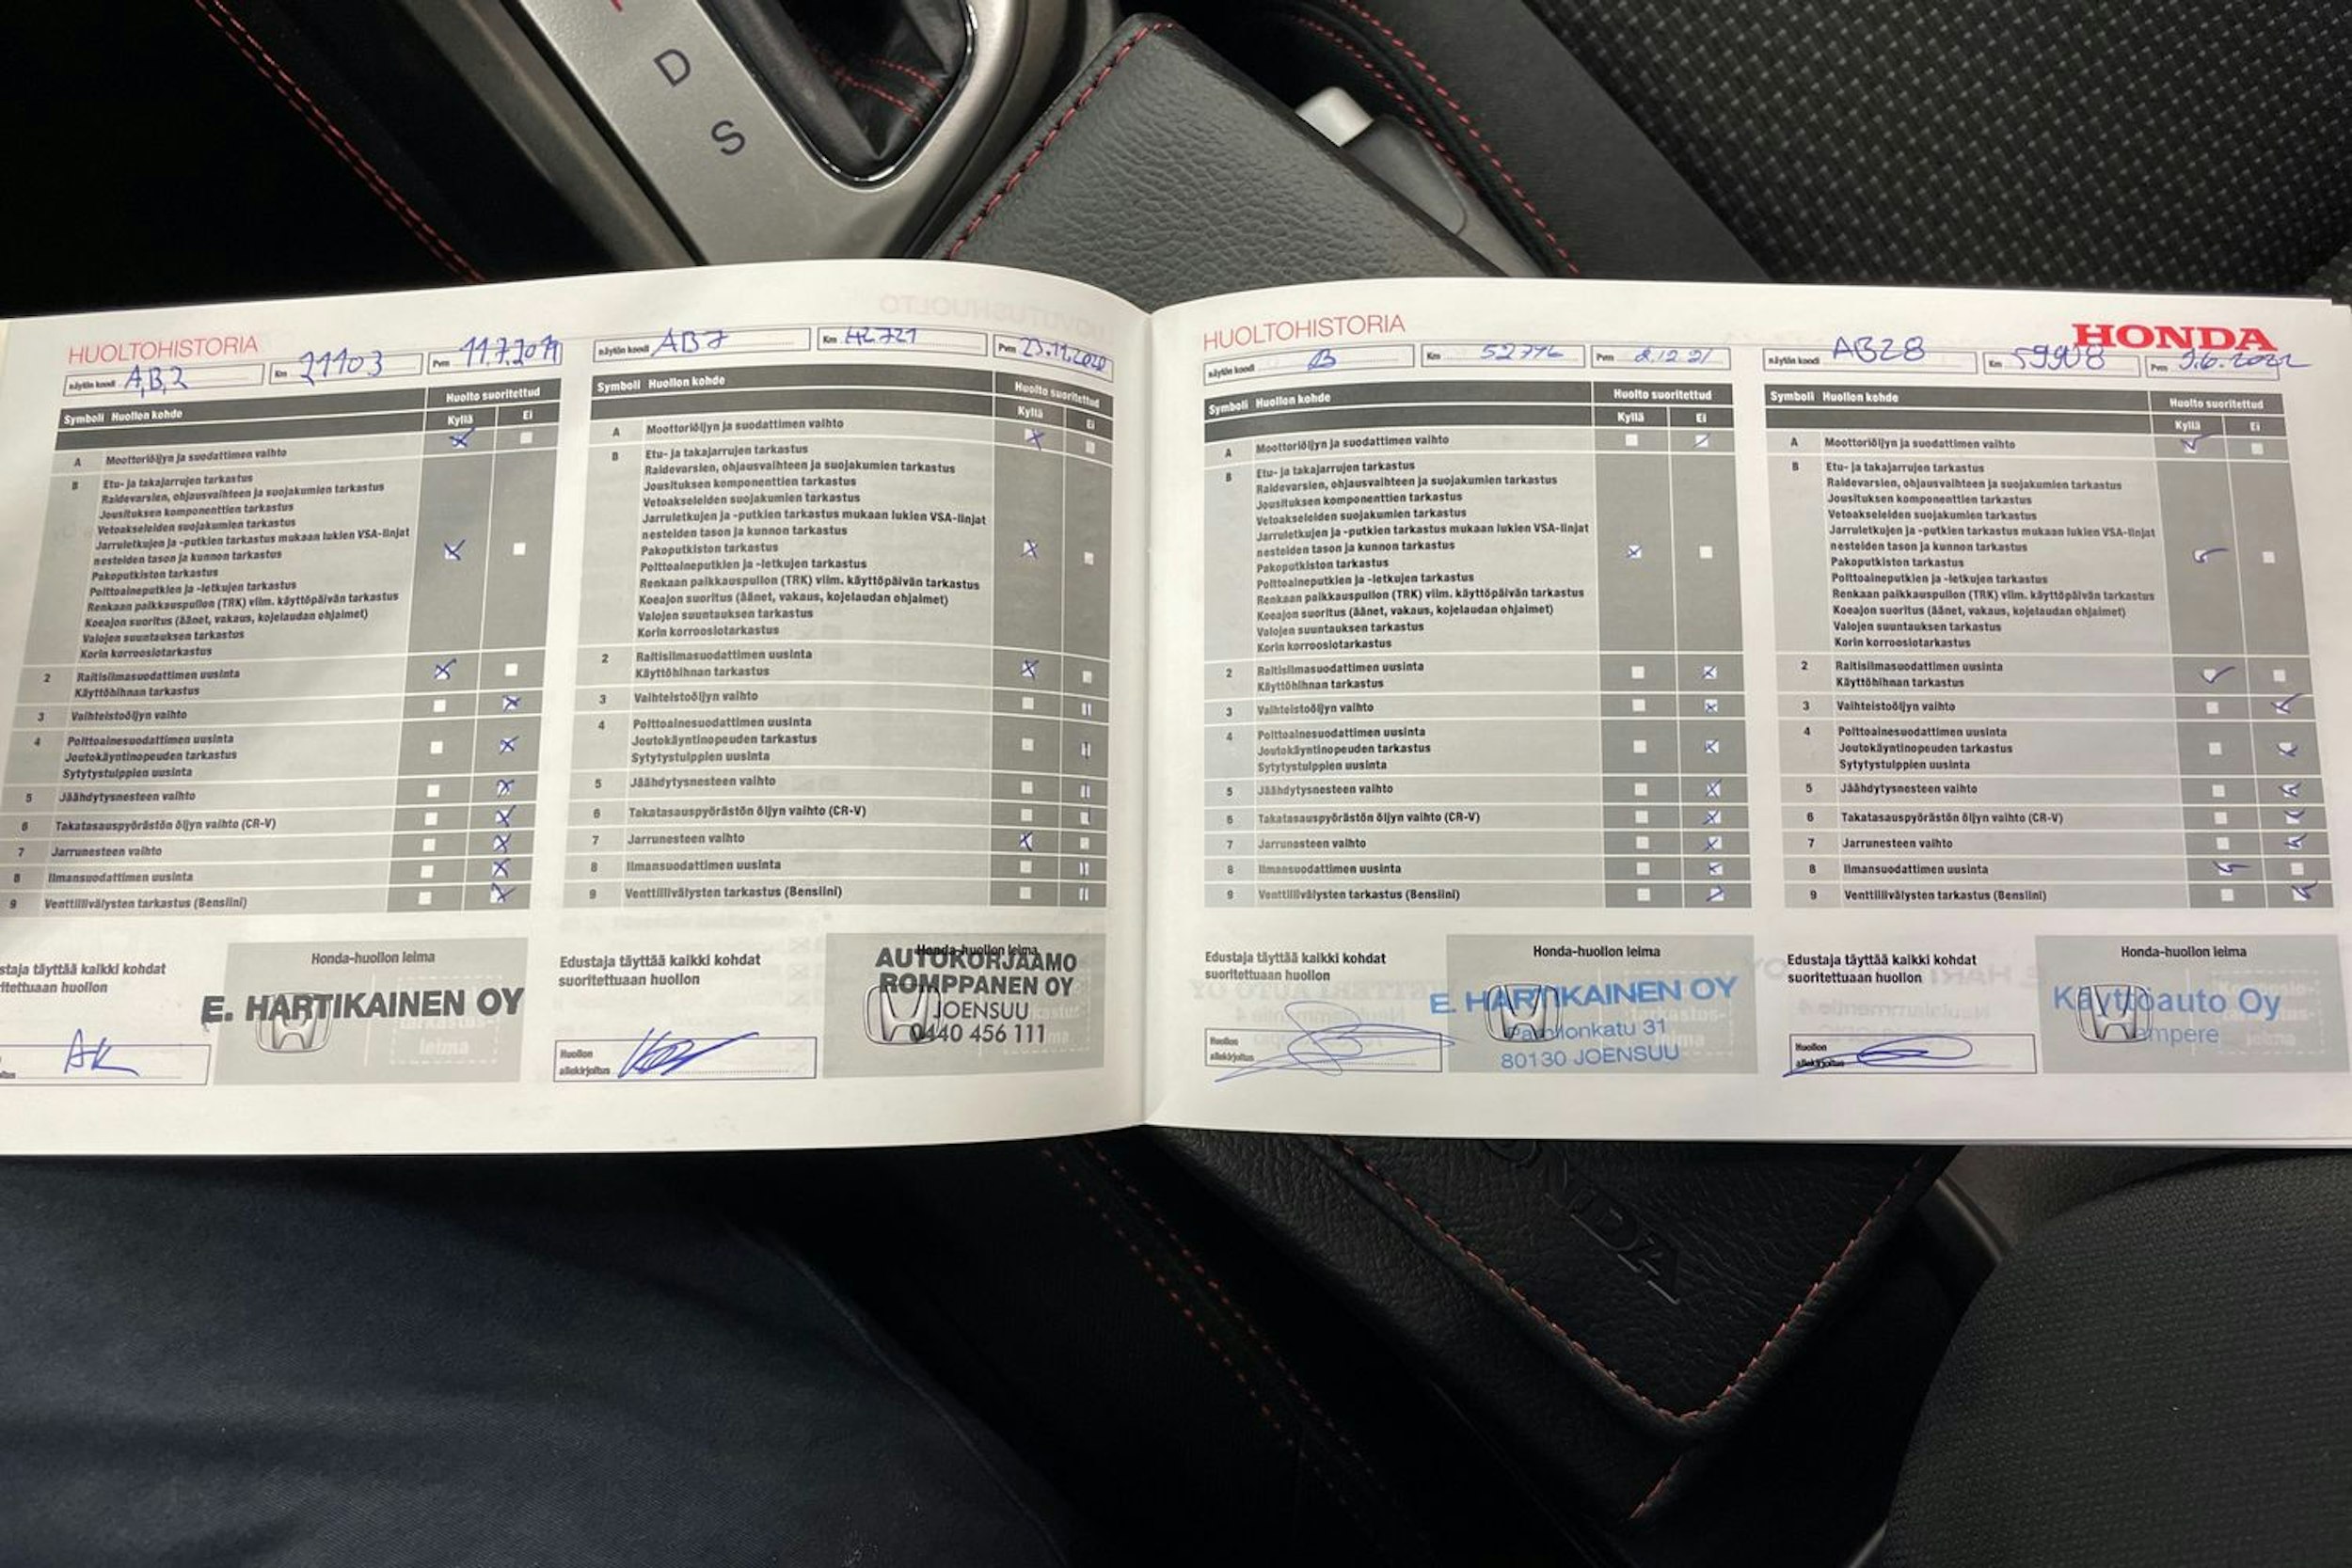 D
S
HUOLTOHISTORIA
näytön koodi A,B,2 Km 21103 Pvm 11.7.2019
Symboli Huollon kohde Huolto suoritettud
Kyllä Ei
A Moottoriöljyn ja suodattimen vaihto
B Etu- ja takajarrujen tarkastus
Raidevarsien, ohjausvaihteen ja suojakumien tarkastus
Jousituksen komponenttien tarkastus
Vetoakseleiden suojakumien tarkastus
Jarruletkujen ja -putkien tarkastus mukaan lukien VSA-linjat
nesteiden tason ja kunnon tarkastus
Pakoputkiston tarkastus
Polttoaineputkien ja -letkujen tarkastus
Renkaan paikkauspullon (TRK) viim. käyttöpäivän tarkastus
Koeajon suoritus (äänet, vakaus, kojelaudan ohjaimet)
Valojen suuntauksen tarkastus
Korin korroosiotarkastus
2 Raitisilmasuodattimen uusinta
Käyttöhihnan tarkastus
3 Vaihteistoöljyn vaihto
4 Polttoainesuodattimen uusinta
Joutokäyntinopeuden tarkastus
Sytytystulppien uusinta
5 Jäähdytysnesteen vaihto
6 Takatasauspyörästön öljyn vaihto (CR-V)
7 Jarrunesteen vaihto
8 Ilmansuodattimen uusinta
9 Venttiilivälysten tarkastus (Bensiini)
staja täyttää kaikki kohdat
ritettuaan huollon
Honda-huollon leima
E. HARTIKAINEN OY
AK
näytön koodi AB7 Km 42721 Pvm 23.11.2020
Symboli Huollon kohde Huolto suoritettud
Kyllä Ei
A Moottoriöljyn ja suodattimen vaihto
B Etu- ja takajarrujen tarkastus
Raidevarsien, ohjausvaihteen ja suojakumien tarkastus
Jousituksen komponenttien tarkastus
Vetoakseleiden suojakumien tarkastus
Jarruletkujen ja -putkien tarkastus mukaan lukien VSA-linjat
nesteiden tason ja kunnon tarkastus
Pakoputkiston tarkastus
Polttoaineputkien ja -letkujen tarkastus
Renkaan paikkauspullon (TRK) viim. käyttöpäivän tarkastus
Koeajon suoritus (äänet, vakaus, kojelaudan ohjaimet)
Valojen suuntauksen tarkastus
Korin korroosiotarkastus
2 Raitisilmasuodattimen uusinta
Käyttöhihnan tarkastus
3 Vaihteistoöljyn vaihto
4 Polttoainesuodattimen uusinta
Joutokäyntinopeuden tarkastus
Sytytystulppien uusinta
5 Jäähdytysnesteen vaihto
6 Takatasauspyörästön öljyn vaihto (CR-V)
7 Jarrunesteen vaihto
8 Ilmansuodattimen uusinta
9 Venttiilivälysten tarkastus (Bensiini)
Edustaja täyttää kaikki kohdat
suoritettuaan huollon
Huollon
allekirjoitus
Honda-huollon leima
AUTOKORJAAMO
ROMPPANEN OY
JOENSUU
0440 456 111
HUOLTOHISTORIA
näytön koodi B Km 52776 Pvm 2.12 21
Symboli Huollon kohde Huolto suoritettud
Kyllä Ei
A Moottoriöljyn ja suodattimen vaihto
B Etu- ja takajarrujen tarkastus
Raidevarsien, ohjausvaihteen ja suojakumien tarkastus
Jousituksen komponenttien tarkastus
Vetoakseleiden suojakumien tarkastus
Jarruletkujen ja -putkien tarkastus mukaan lukien VSA-linjat
nesteiden tason ja kunnon tarkastus
Pakoputkiston tarkastus
Polttoaineputkien ja -letkujen tarkastus
Renkaan paikkauspullon (TRK) viim. käyttöpäivän tarkastus
Koeajon suoritus (äänet, vakaus, kojelaudan ohjaimet)
Valojen suuntauksen tarkastus
Korin korroosiotarkastus
2 Raitisilmasuodattimen uusinta
Käyttöhihnan tarkastus
3 Vaihteistoöljyn vaihto
4 Polttoainesuodattimen uusinta
Joutokäyntinopeuden tarkastus
Sytytystulppien uusinta
5 Jäähdytysnesteen vaihto
6 Takatasauspyörästön öljyn vaihto (CR-V)
7 Jarrunesteen vaihto
8 Ilmansuodattimen uusinta
9 Venttiilivälysten tarkastus (Bensiini)
Edustaja täyttää kaikki kohdat
suoritettuaan huollon
Huollon
allekirjoitus
Honda-huollon leima
E. HARTIKAINEN OY
Pamilonkatu 31
80130 JOENSUU
HONDA
näytön koodi AB28 Km 59908 Pvm 9.6.2022
Symboli Huollon kohde Huolto suoritettud
Kyllä Ei
A Moottoriöljyn ja suodattimen vaihto
B Etu- ja takajarrujen tarkastus
Raidevarsien, ohjausvaihteen ja suojakumien tarkastus
Jousituksen komponenttien tarkastus
Vetoakseleiden suojakumien tarkastus
Jarruletkujen ja -putkien tarkastus mukaan lukien VSA-linjat
nesteiden tason ja kunnon tarkastus
Pakoputkiston tarkastus
Polttoaineputkien ja -letkujen tarkastus
Renkaan paikkauspullon (TRK) viim. käyttöpäivän tarkastus
Koeajon suoritus (äänet, vakaus, kojelaudan ohjaimet)
Valojen suuntauksen tarkastus
Korin korroosiotarkastus
2 Raitisilmasuodattimen uusinta
Käyttöhihnan tarkastus
3 Vaihteistoöljyn vaihto
4 Polttoainesuodattimen uusinta
Joutokäyntinopeuden tarkastus
Sytytystulppien uusinta
5 Jäähdytysnesteen vaihto
6 Takatasauspyörästön öljyn vaihto (CR-V)
7 Jarrunesteen vaihto
8 Ilmansuodattimen uusinta
9 Venttiilivälysten tarkastus (Bensiini)
Edustaja täyttää kaikki kohdat
suoritettuaan huollon
Huollon
allekirjoitus
Honda-huollon leima
Käyttöauto Oy
Tampere
HONDA